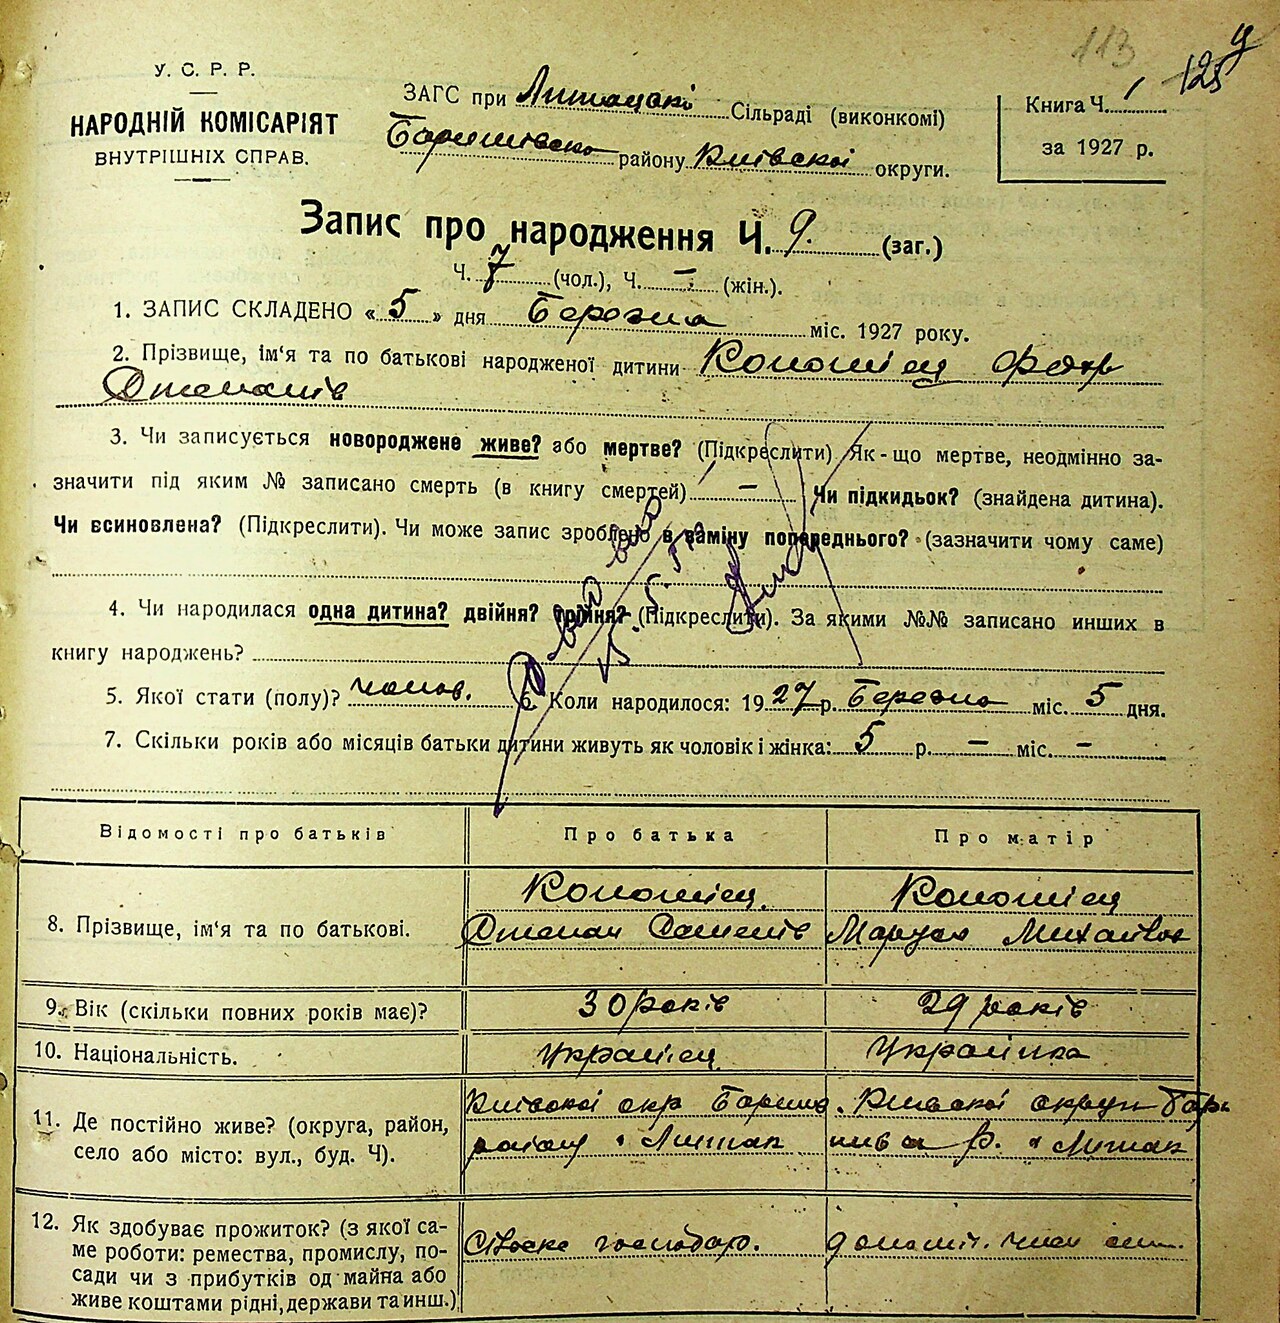 113
125
У. С. Р. Р.
НАРОДНІЙ КОМІСАРІЯТ
ВНУТРІШНІХ СПРАВ.
ЗАГС при Сільраді (виконкомі)
району Київскої округи.
Книга Ч. 1
за 1927 р.
Запис про народження Ч. 9. (заг.)
Ч. 7 (чол.), Ч. – (жін.).
1. ЗАПИС СКЛАДЕНО « 5 » дня Березня міс. 1927 року.
2. Прізвище, ім'я та по батькові народженої дитини Коломієц Федір
Степанів
3. Чи записується новороджене живе? або мертве? (Підкреслити) Як-що мертве, неодмінно за-
значити під яким № записано смерть (в книгу смертей) – Чи підкидьок? (знайдена дитина).
Чи всиновлена? (Підкреслити). Чи може запис зроблено в заміну попереднього? (зазначити чому саме)
4. Чи народилася одна дитина? двійня? трійня? (Підкреслити). За якими №№ записано инших в
книгу народжень?
5. Якої стати (полу)? чолов. 6. Коли народилося: 1927 р. Березня міс. 5 дня.
7. Скільки років або місяців батьки дитини живуть як чоловік і жінка: 5 р. – міс. –
Відомості про батьків Про батька Про матір
8. Прізвище, ім'я та по батькові. Коломієц Степан Коломієц Маруся Михайлов
9. Вік (скільки повних років має)? 30 років 29 років
10. Національність. Українец Українка
11. Де постійно живе? (округа, район, Київскої окр Київскої округи
село або місто: вул., буд. Ч). району
12. Як здобуває прожиток? (з якої са-
ме роботи: ремества, промислу, по- господар.
сади чи з прибутків од майна або
живе коштами рідні, держави та инш.)